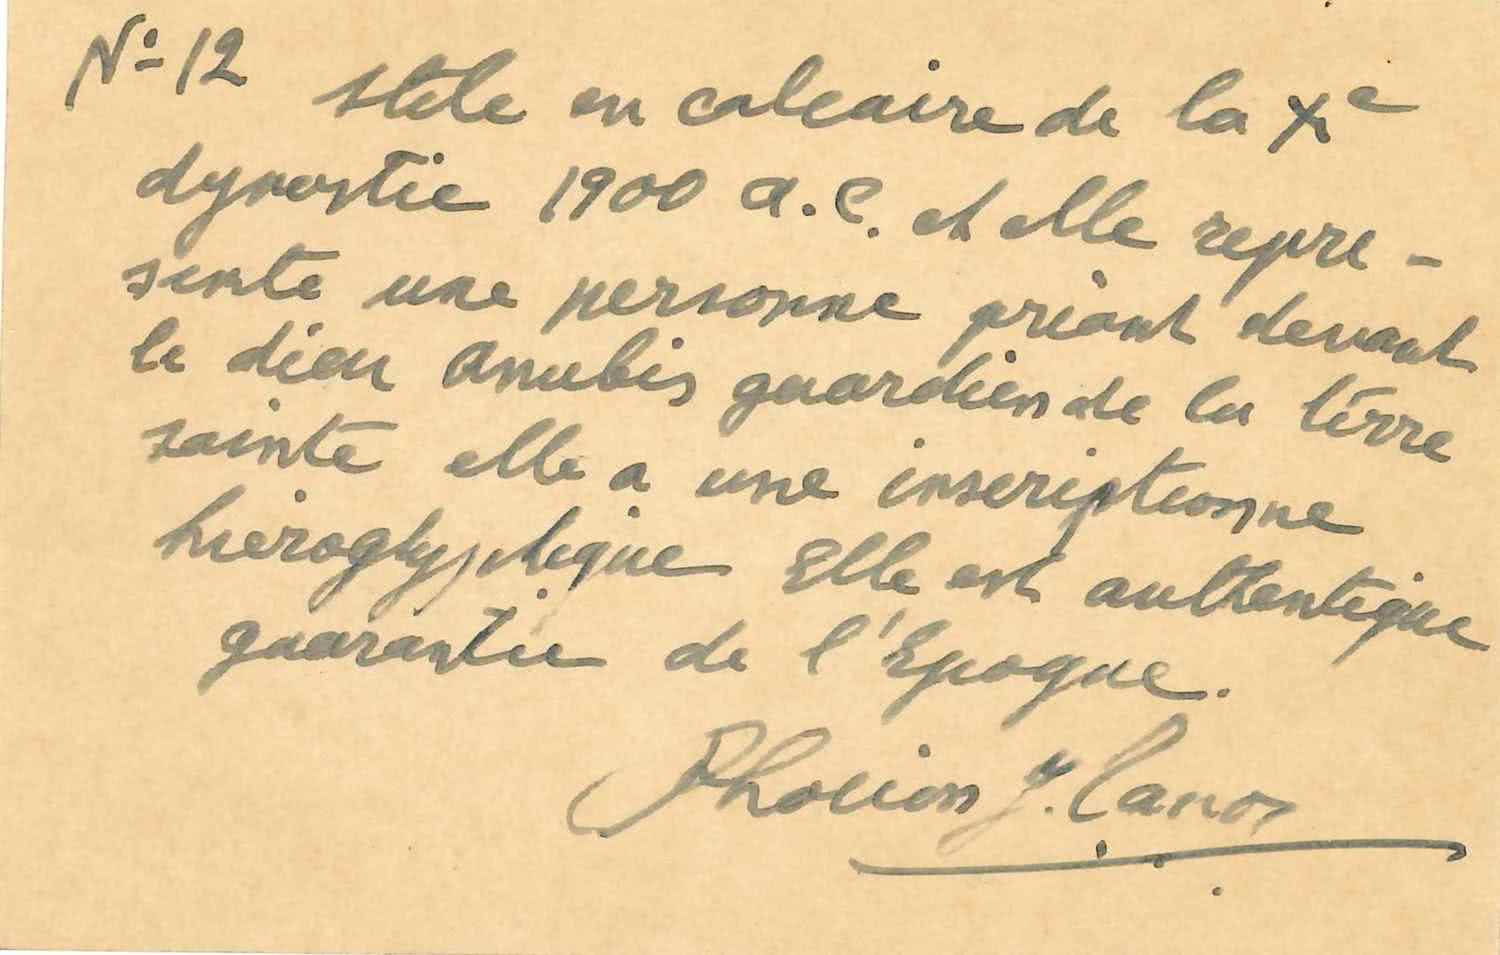 No 12
stele en calcaire de la Xe
dynastie 1900 a.C. et elle repre-
sente une personne priant devant
le dieu Anubis guardien de la térre
sainte elle a une inscriptionne
hieroglyphique Elle est authentique
guarantie de l'Epoque.
Phocion J. Tanos